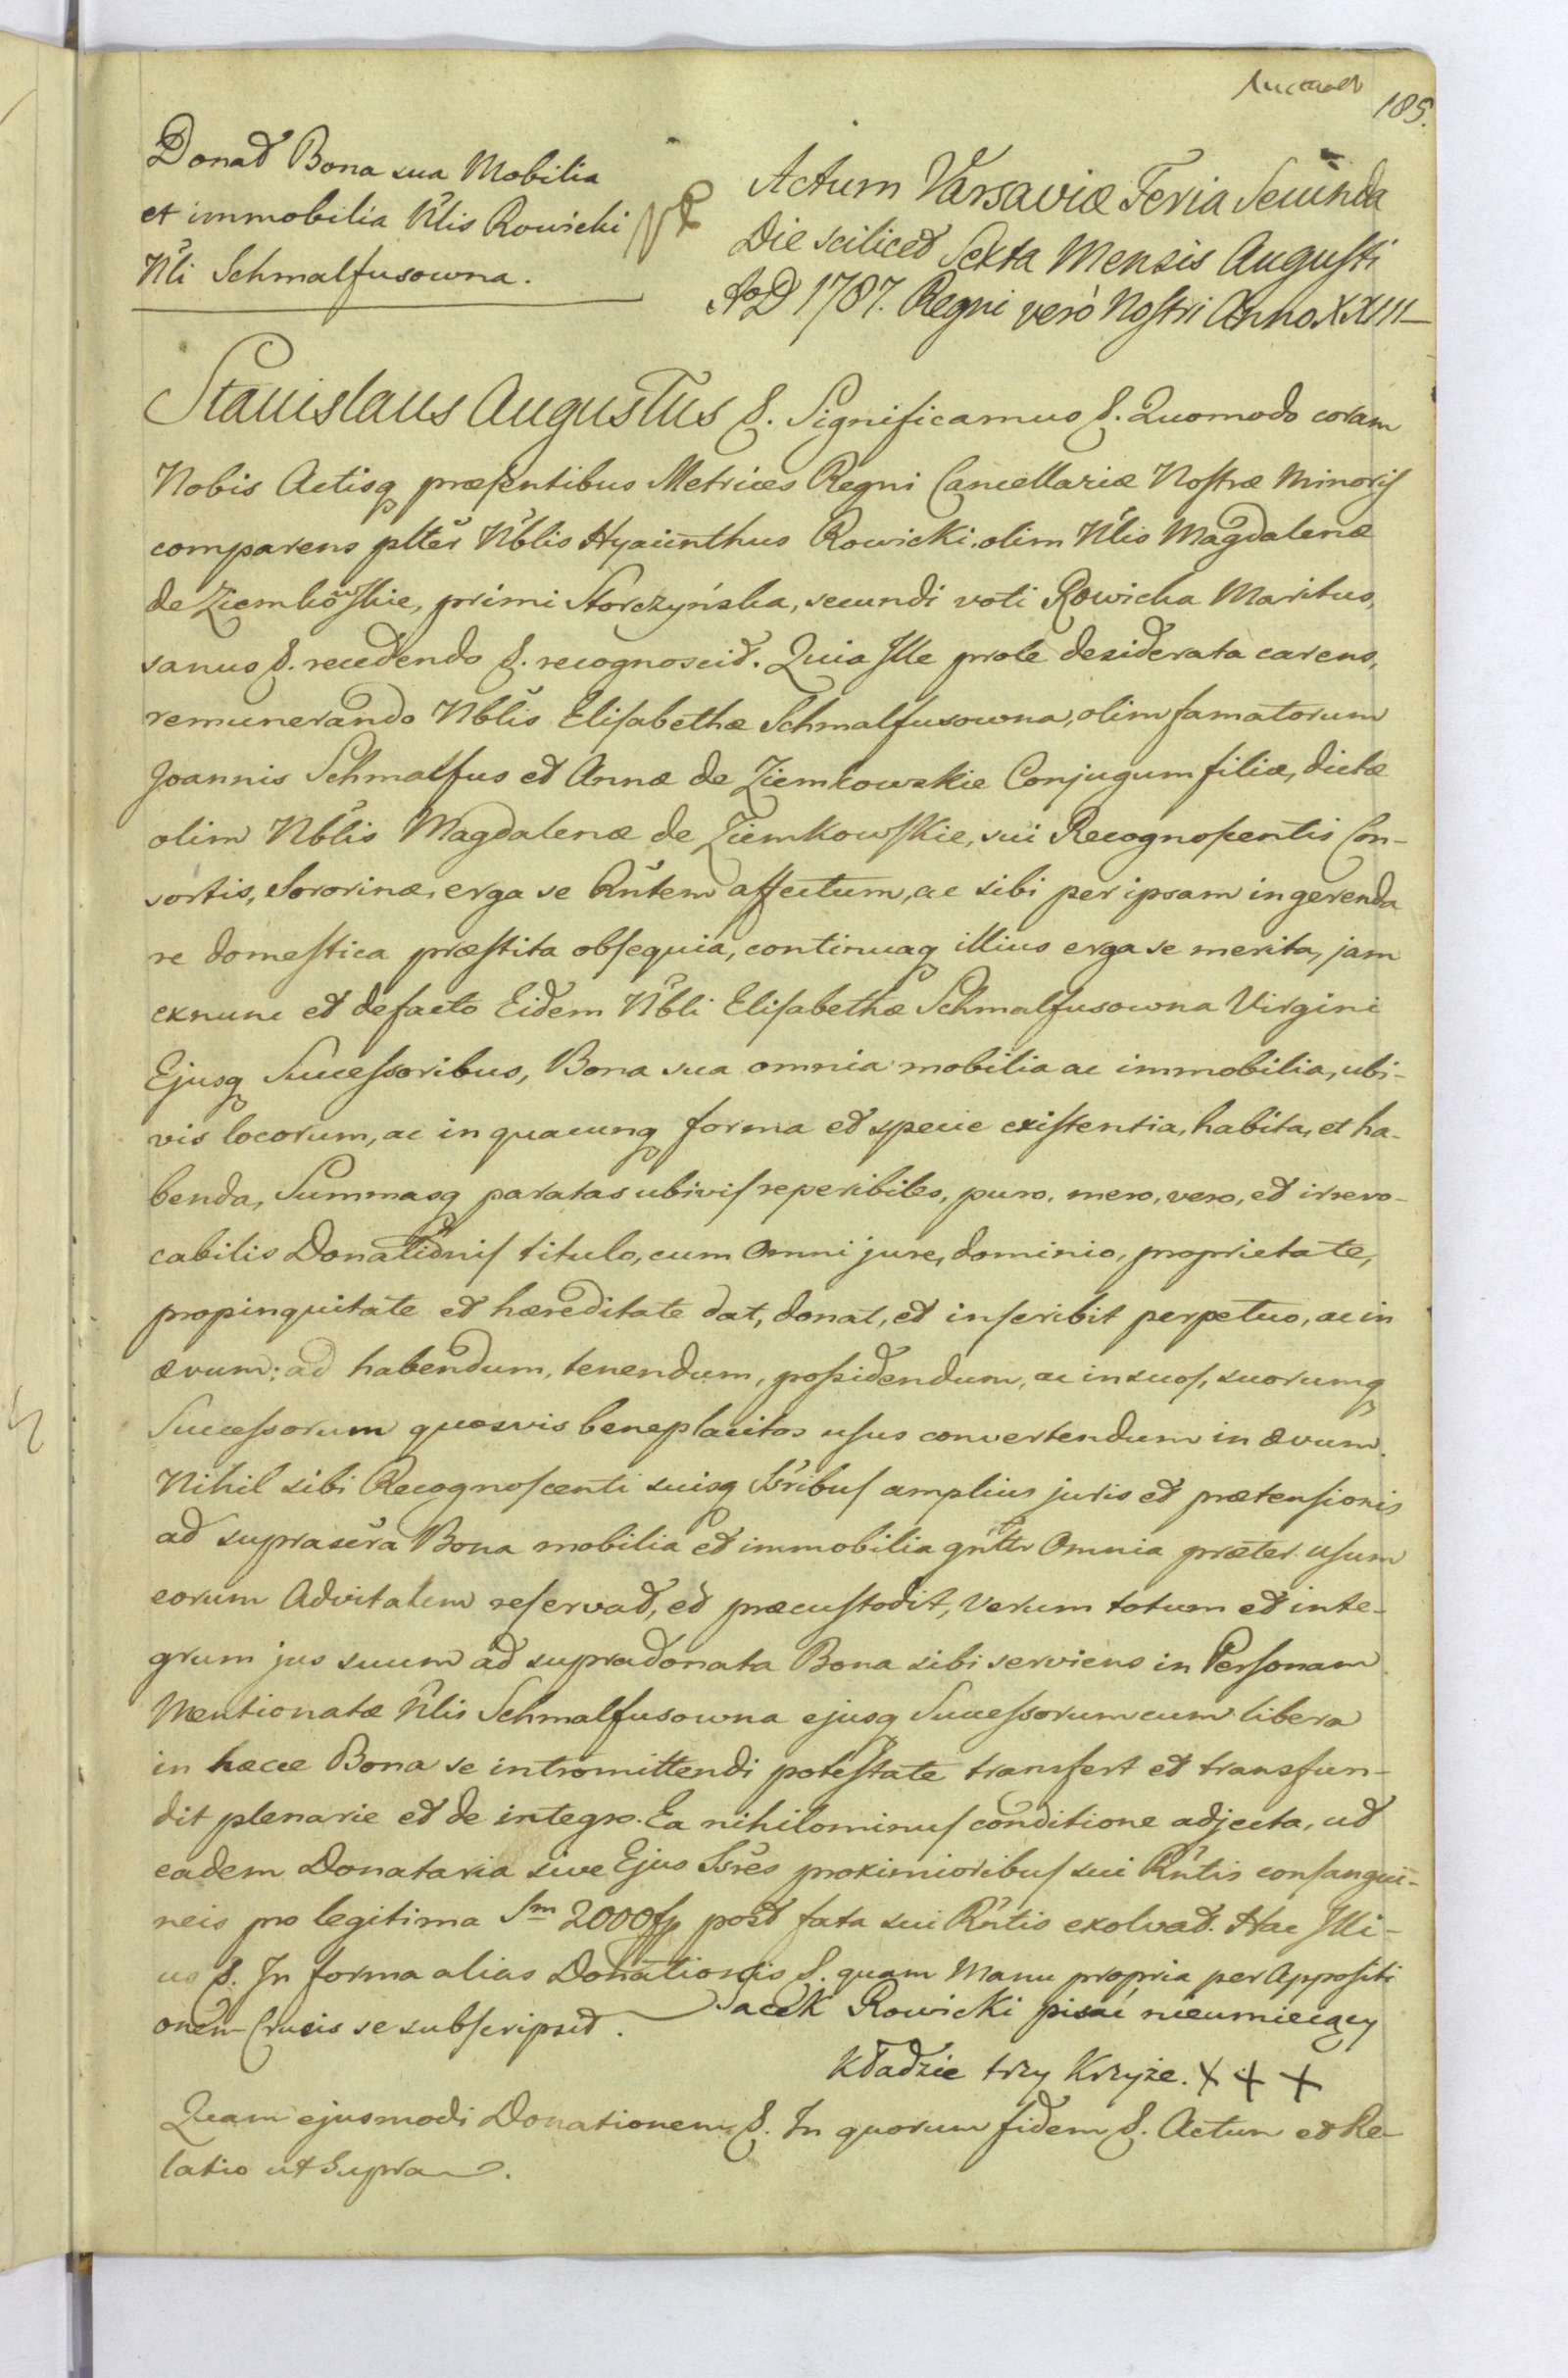 185.
Donat Bona sua Mobilia
et immobilia Nlis Rowicki
Nli Schmalfusowna.
Actum Varsaviæ Feria Secunda
Die scilicet Sexta Mensis Augusti
AoD 1787. Regni verò Nostri Anno XXIII
Stanislaus Augustus &. Significamus &. Quomodo coram
Nobis Actisq præsentibus Metrices Regni Cancellariæ Nostræ Minoris
comparens plter Nblis Hyacinthus Rowicki, olim Nlis Magdalenæ
de Ziemkowskie, primi Storczyńska, secundi voti Rowicka Maritus,
sanus &. recedendo &. recognoscit. Quia Ille prole desiderata carens,
remunerando Nblis Elisabethæ Schmalfusowna, olim famatorum
Joannis Schmalfus et Annæ de Ziemkowskie Conjugum filiæ, dictæ
olim Nblis Magdalenæ de Ziemkowskie, sui Recognoscentis Con-
sortis, Sororinæ, erga se Rntem affectum, ac sibi per ipsam in gerenda
re domestica præstita obsequia, continuaq illius erga se merita, jam
exnunc et defacto Eidem Nbli Elisabethæ Schmalfusowna Virgini
Ejusq Successoribus, Bona sua omnia mobilia ac immobilia, ubi-
vis locorum, ac in quacunq forma et specie existentia, habita, et ha-
benda, Summasq paratas ubivis reperibiles, puro, mero, vero, et irrevo-
cabilis Donationis titulo, cum Omni jure, dominio, proprietate,
propinquitate et hæreditate dat, donat, et inscribit perpetuo, ac in
ævum: ad habendum, tenendum, possidendum, ac in suos, suorumq
Successorum quosvis beneplacitos usus convertendum in ævum.
Nihil sibi Recognoscenti suisq Ssribus amplius juris et prætensionis
ad suprascra Bona mobilia et immobilia gnltr Omnia præter usum
eorum Advitalem reservat, et præcustodit, Verum totum et inte-
grum jus suum ad supradonata Bona sibi serviens in Personam
Mentionatæ Nlis Schmalfusowna ejusq Successorum cum libera
in hæcce Bona se intromittendi potestate transfert et transfun-
dit plenarie et de integro. Ea nihilominus conditione adjecta, ut
eadem Donataria sive Ejus Ssres proximioribus sui Rntis consangui-
neis pro legitima Sm 2000 fp post fata sui Rntis exolvat. Hac Illi-
us &. In forma alias Donationis &. quam Manu propria per Appositi
onem Crucis se subscripsit. Jacek Rowicki pisać nieumieiący
kładzie trzy Krzyże. + + +
Quam ejusmodi Donationem &. In quorum fidem &. Actum et Re-
latio ut Supra.